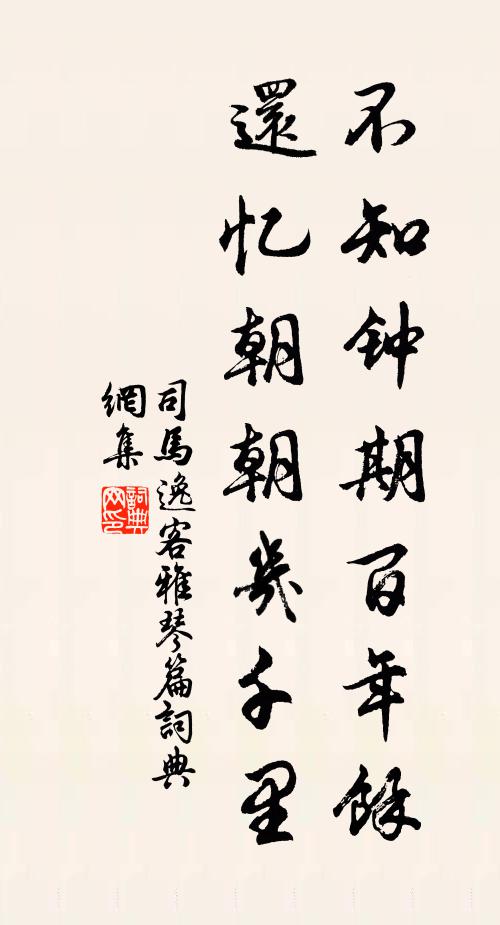 不知钟期百年餘
還忆朝朝幾千里
司馬逸客雅琴篇詞典
網集
詞典網印